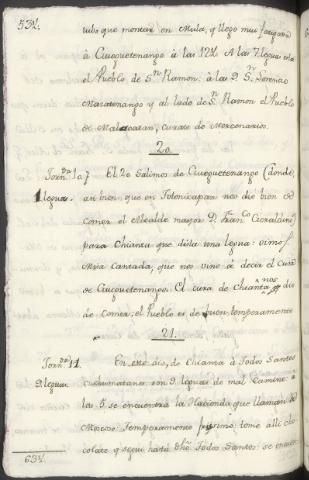 53½.
tube que montar en Mula, y llego muy fatigado
à Gueguetenango à las 12½. A las 7 leguas està
el Pueblo de Sn. Ramon: à las 9. Sn. Lorenzo
Masatenango y al lado de Sn. Ramon el Pueblo
de Malacatan, curato de Mercenarios.
20.
Jorn.da 10.ª El 20 Salimos de Gueguetenango (donde,
1 legua. aun bien que en Totonicapan nos dio bien de
comer el Alcalde mayor D. Fran.co Geraldino)
para Chianta que dista una legua: oimos
Misa Cantada, que nos vino à decir el Cura
de Gueguetenango. El cura de Chianta nos dio
de comer, el Pueblo es de buen temperamento
21.
Jorn.da 11. En este dia, de Chianta à Todos Santos
9 leguas. Cuchumatanes son 9 leguas de mal Camino: à
las 5 se encuentra la Hacienda que llaman de
Moscoso Temperamento frigissimo, tome alli cho
colate y segui hasta dho. Todos Santos: se encuen
63½.